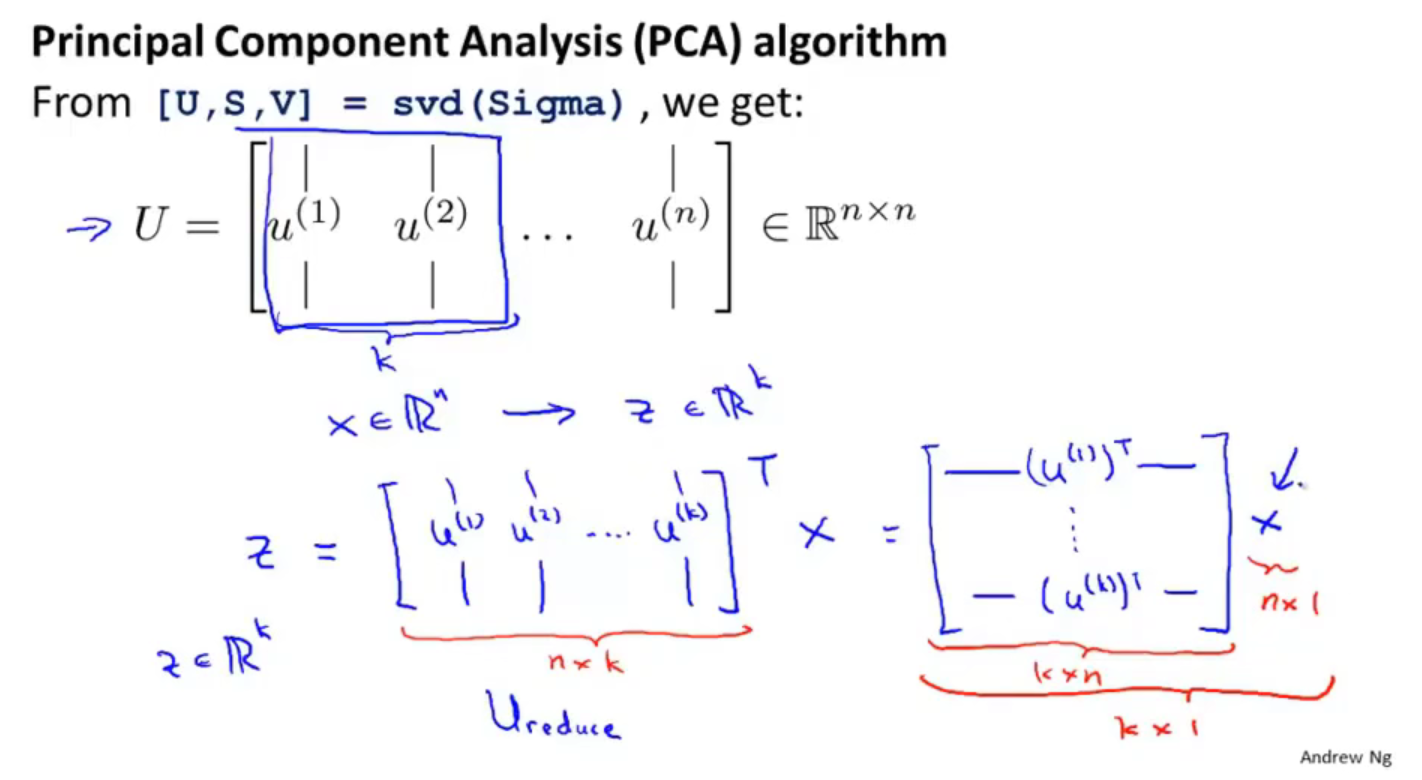 Principal Component Analysis (PCA) algorithm
From [U,S,V] = svd(Sigma) , we get:
→ U = [ u^(1) u^(2) ... u^(n) ] ∈ ℝ^{n×n}
k
x ∈ ℝ^n → z ∈ ℝ^k
z = [ u^(1) u^(2) .... u^(k) ]^T x = [ —(u^(1))^T— ⋮ —(u^(k))^T— ] x
n × 1
z ∈ ℝ^k
n × k
k × n
U reduce
k × 1
Andrew Ng